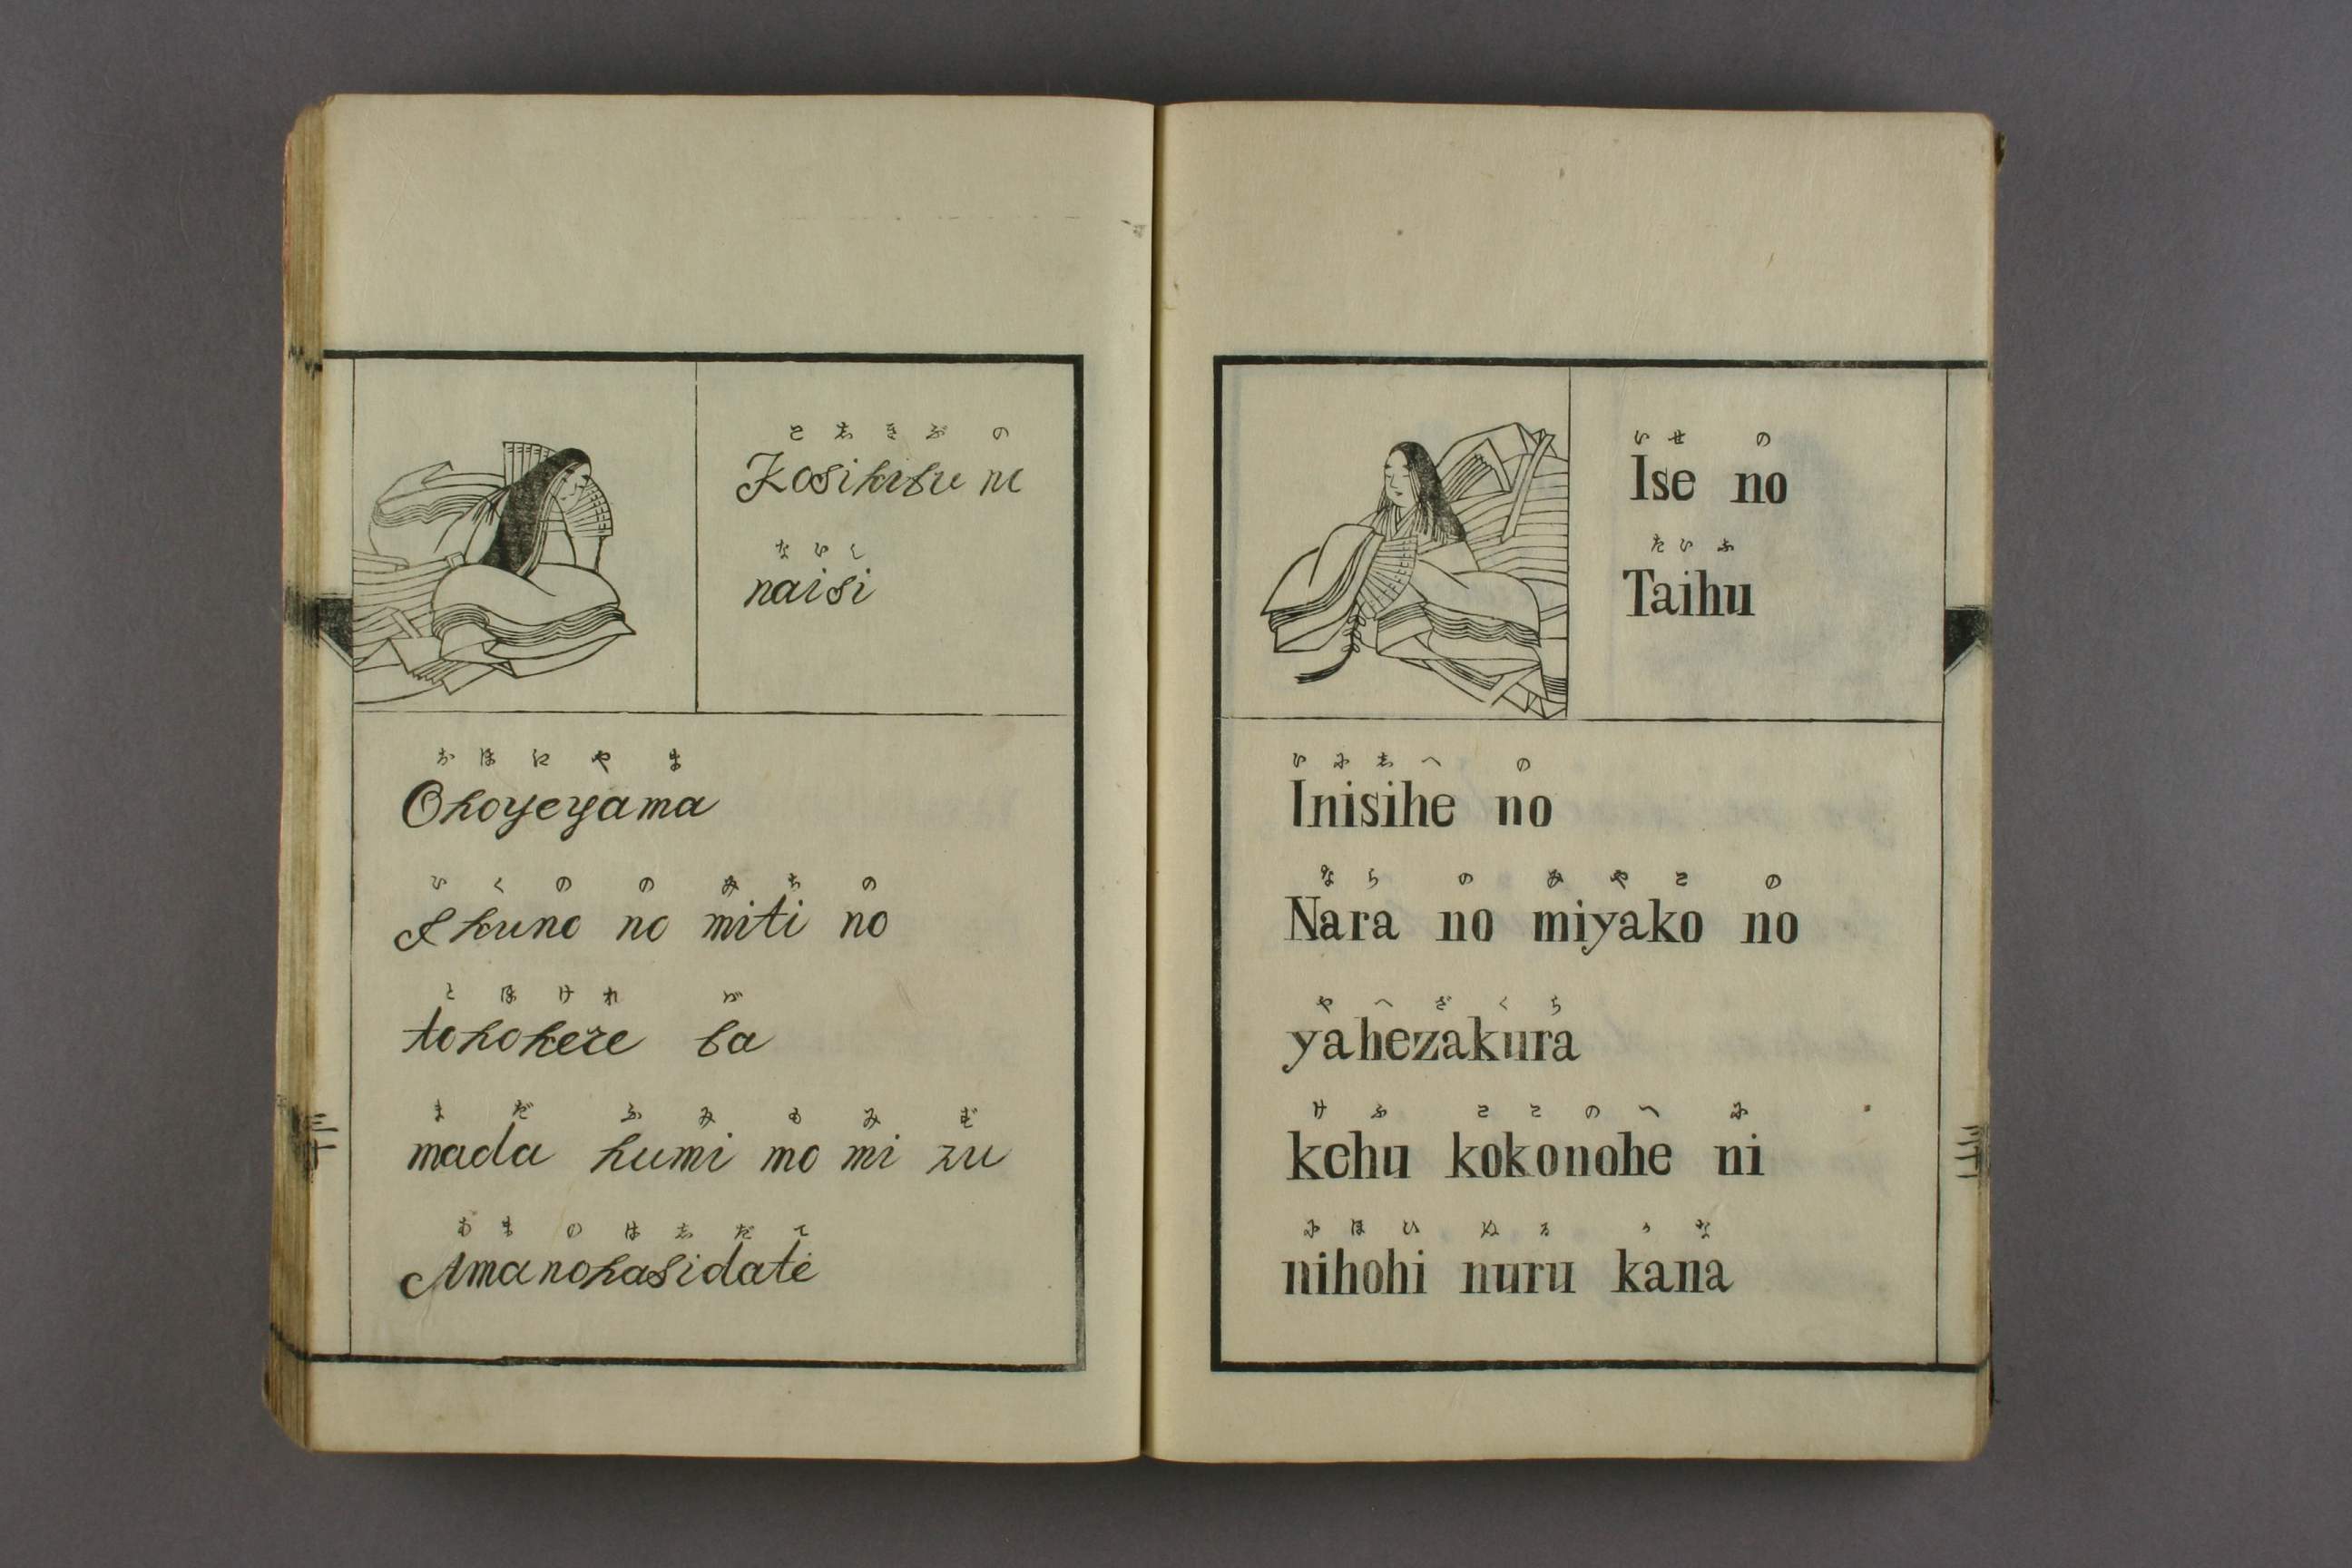 こしきぶの
Kosikibu no
ないし
naisi
おほえやま
Ohoyeyama
いくののみちの
Ikuno no miti no
とほければ
tohokere ba
まだふみもみず
mada humi mo mi zu
あまのはしだて
Amanohasidate
三十
いせの
Ise no
たいふ
Taihu
いにしへの
Inisihe no
ならのみやこの
Nara no miyako no
やへざくら
yahezakura
けふここのへに
kehu kokonohe ni
にほひぬるかな
nihohi nuru kana